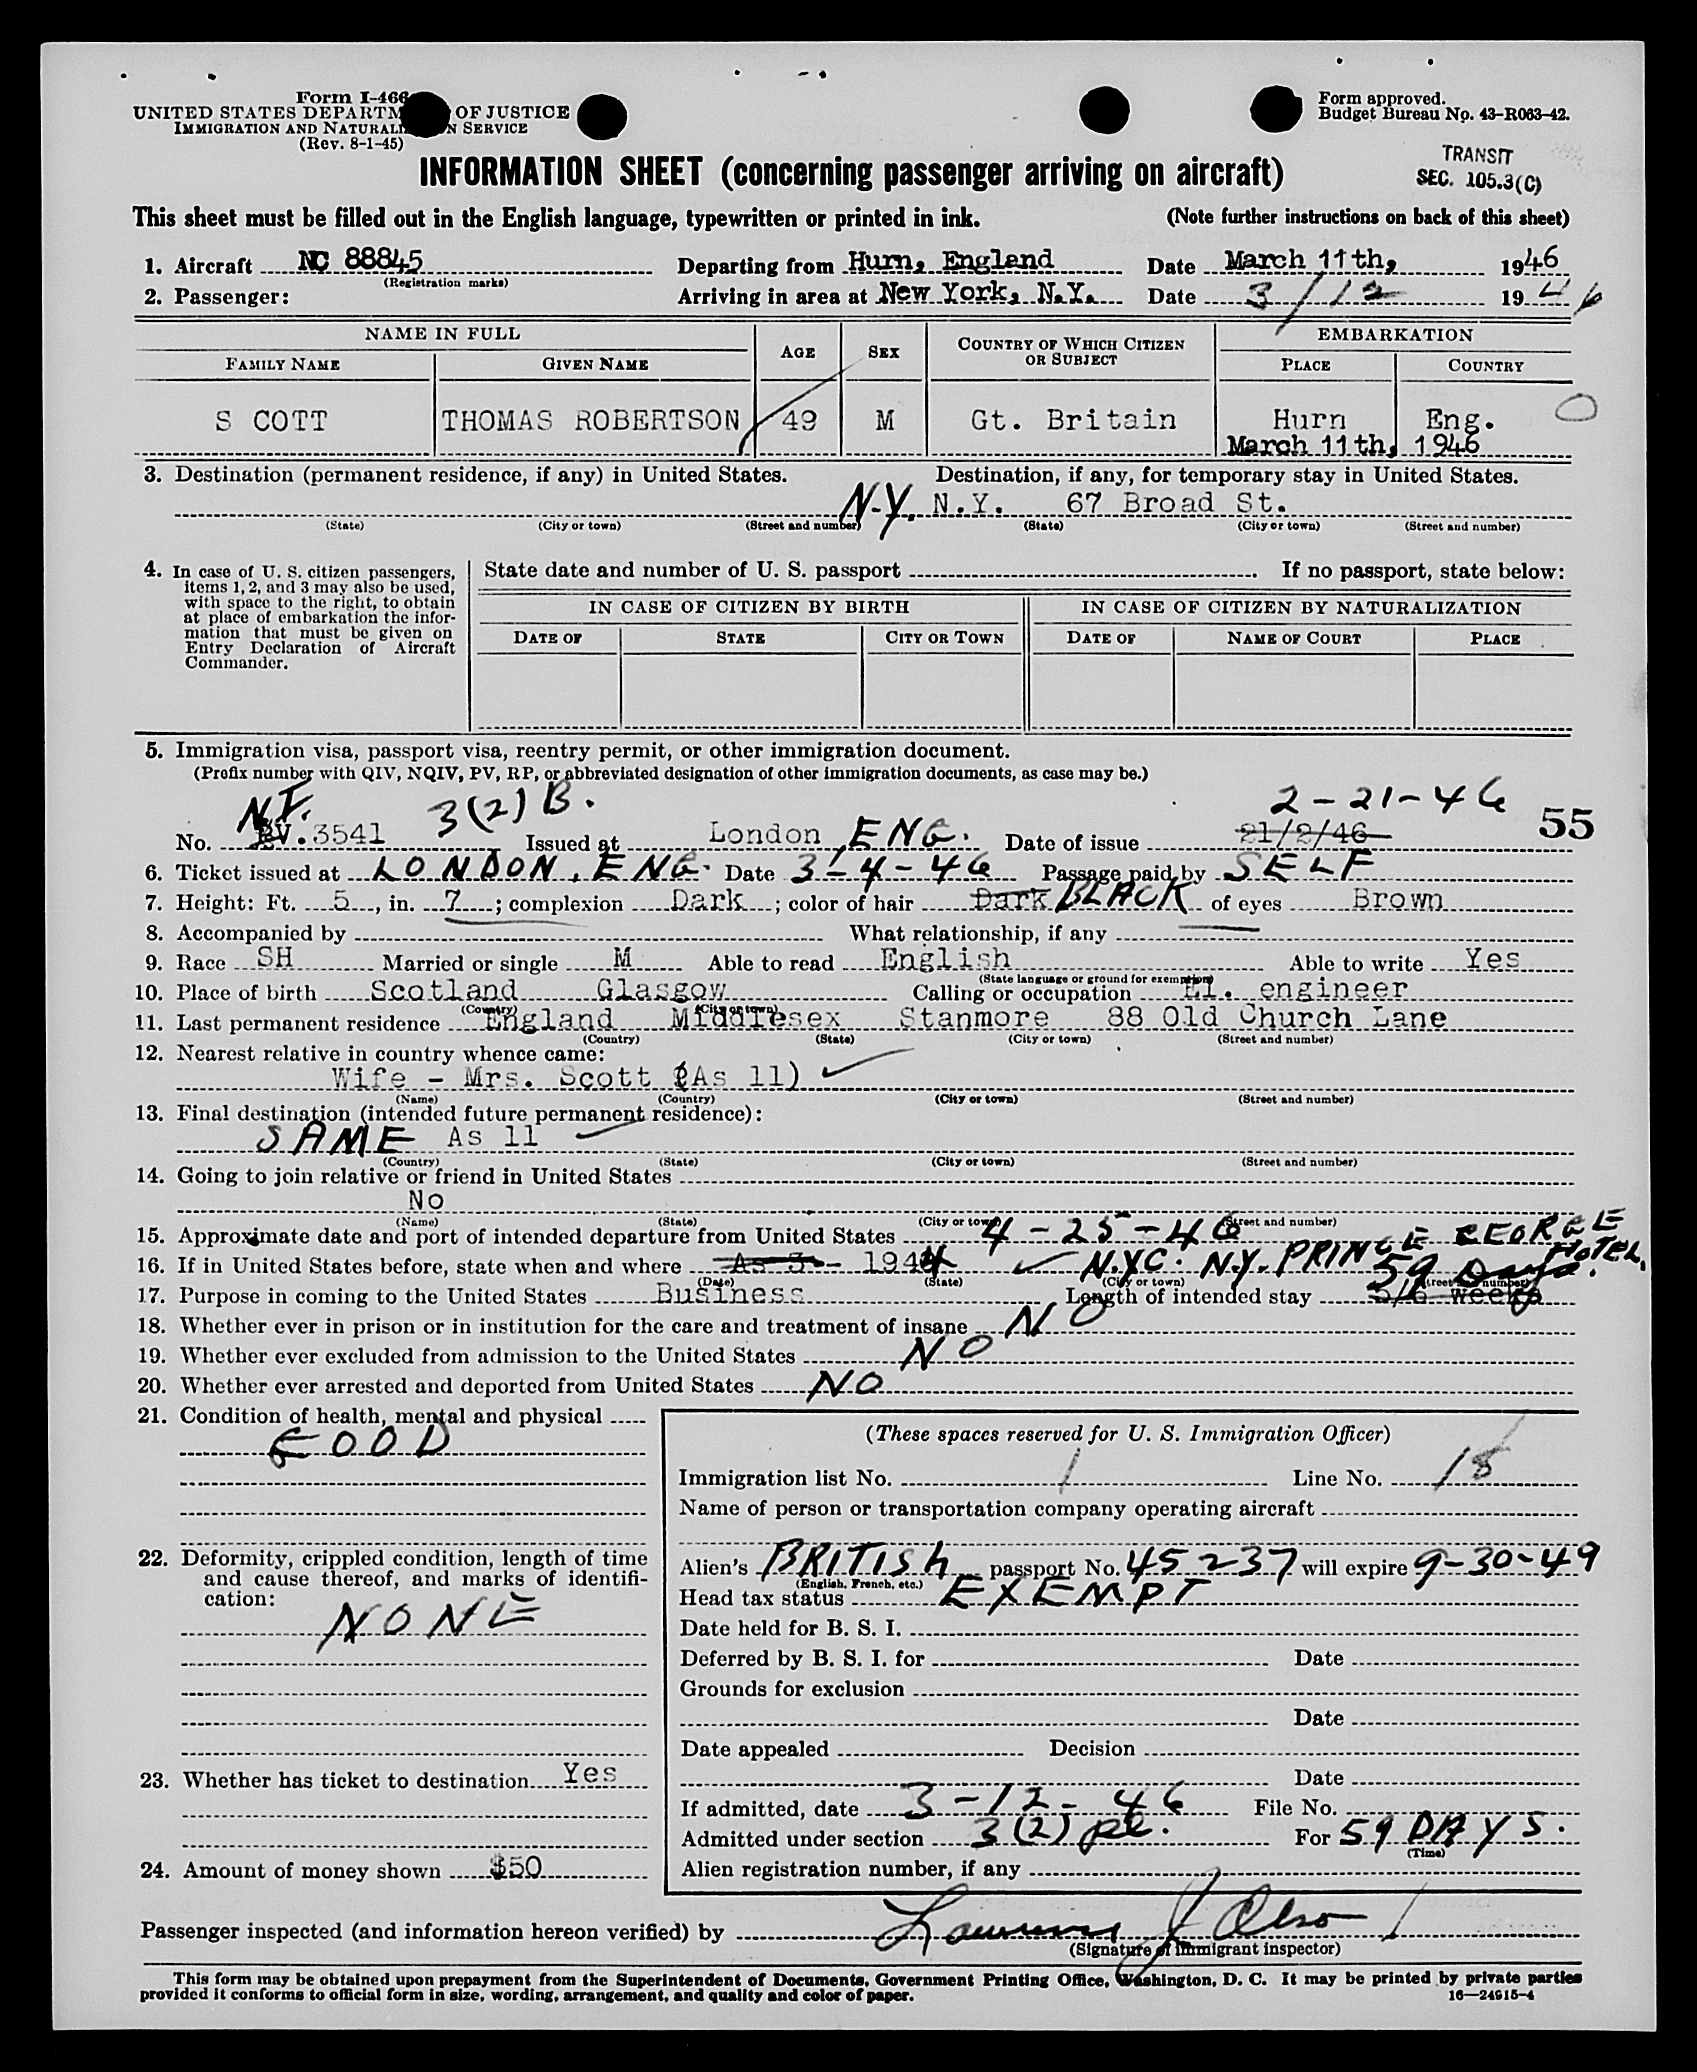 Form I-466
UNITED STATES DEPARTM OF JUSTICE
IMMIGRATION AND NATURALI N SERVICE
(Rev. 8-1-45)
Form approved.
Budget Bureau No. 43-R063-42.
TRANSIT
SEC. 105.3(C)
INFORMATION SHEET (concerning passenger arriving on aircraft)
This sheet must be filled out in the English language, typewritten or printed in ink. (Note further instructions on back of this sheet)
1. Aircraft NC 88845 Departing from Hurn, England Date March 11th, 1946
(Registration marks)
2. Passenger: Arriving in area at New York, N.Y. Date 3/12 1946
NAME IN FULL AGE SEX COUNTRY OF WHICH CITIZEN OR SUBJECT EMBARKATION
FAMILY NAME GIVEN NAME PLACE COUNTRY
S COTT THOMAS ROBERTSON 49 M Gt. Britain Hurn Eng. 0
March 11th, 1946
3. Destination (permanent residence, if any) in United States. Destination, if any, for temporary stay in United States.
N.Y. N.Y. 67 Broad St.
(State) (City or town) (Street and number) (State) (City or town) (Street and number)
4. In case of U. S. citizen passengers, items 1, 2, and 3 may also be used, with space to the right, to obtain at place of embarkation the information that must be given on Entry Declaration of Aircraft Commander.
State date and number of U. S. passport . If no passport, state below:
IN CASE OF CITIZEN BY BIRTH IN CASE OF CITIZEN BY NATURALIZATION
DATE OF STATE CITY OR TOWN DATE OF NAME OF COURT PLACE
5. Immigration visa, passport visa, reentry permit, or other immigration document.
(Prefix number with QIV, NQIV, PV, RP, or abbreviated designation of other immigration documents, as case may be.)
N.I. 3(2)B. 2-21-46 55
No. V.3541 Issued at London, ENG. Date of issue 21/2/46
6. Ticket issued at LONDON, ENG. Date 3-4-46 Passage paid by SELF
7. Height: Ft. 5, in. 7; complexion Dark; color of hair Dark BLACK of eyes Brown
8. Accompanied by What relationship, if any
9. Race SH Married or single M Able to read English Able to write Yes
(State language or ground for exemption)
10. Place of birth Scotland Glasgow Calling or occupation El. engineer
(Country) (City or town)
11. Last permanent residence England Middlesex Stanmore 88 Old Church Lane
(Country) (State) (City or town) (Street and number)
12. Nearest relative in country whence came:
Wife - Mrs. Scott (As 11)
(Name) (Country) (City or town) (Street and number)
13. Final destination (intended future permanent residence):
SAME As 11
(Country) (State) (City or town) (Street and number)
14. Going to join relative or friend in United States
No
(Name) (State) (City or town) (Street and number)
15. Approximate date and port of intended departure from United States 4-25-46
16. If in United States before, state when and where As 3 - 1944 N.Y.C. N.Y. PRINCE GEORGE HOTEL.
(Date) (State) (City or town) (Street and number)
17. Purpose in coming to the United States Business Length of intended stay 5/6 weeks 59 Days.
18. Whether ever in prison or in institution for the care and treatment of insane NO
19. Whether ever excluded from admission to the United States NO
20. Whether ever arrested and deported from United States NO
21. Condition of health, mental and physical
GOOD
22. Deformity, crippled condition, length of time and cause thereof, and marks of identification:
NONE
23. Whether has ticket to destination Yes
24. Amount of money shown $50
(These spaces reserved for U. S. Immigration Officer)
Immigration list No. 1 Line No. 18
Name of person or transportation company operating aircraft
Alien's BRITISH passport No. 45237 will expire 9-30-49
(English, French, etc.)
Head tax status EXEMPT
Date held for B. S. I.
Deferred by B. S. I. for Date
Grounds for exclusion
Date
Date appealed Decision
Date
If admitted, date 3-12-46 File No.
Admitted under section 3(2) For 59 DAYS.
(Time)
Alien registration number, if any
Passenger inspected (and information hereon verified) by
(Signature of immigrant inspector)
This form may be obtained upon prepayment from the Superintendent of Documents, Government Printing Office, Washington, D. C. It may be printed by private parties
provided it conforms to official form in size, wording, arrangement, and quality and color of paper. 16—24915-4